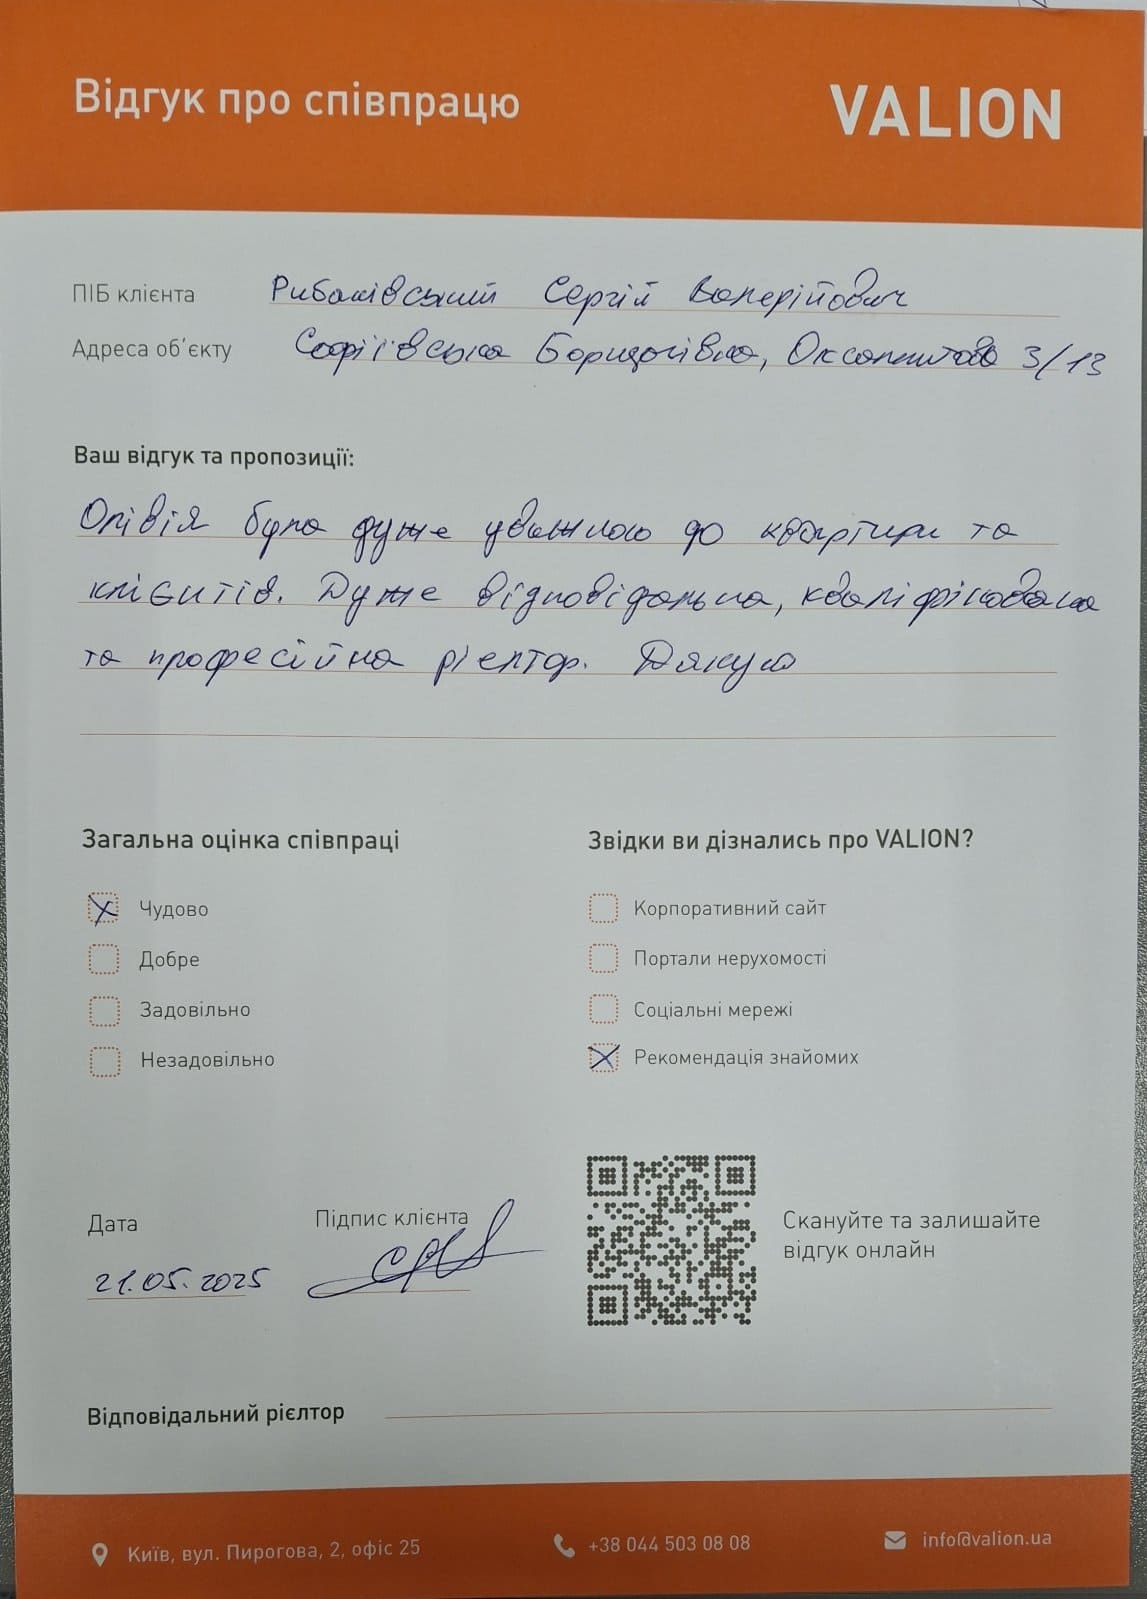 Відгук про співпрацю
VALION
ПІБ клієнта Рибаківський Сергій Валерійович
Адреса об'єкту Софіївська Борщагівка, 3/13
Ваш відгук та пропозиції:
Олівія була дуже уважною до квартири та
клієнтів. Дуже відповідальна, кваліфікована
та професійна рієлтор. Дякую
Загальна оцінка співпраці
Чудово
Добре
Задовільно
Незадовільно
Звідки ви дізнались про VALION?
Корпоративний сайт
Портали нерухомості
Соціальні мережі
Рекомендація знайомих
Дата
21.05.2025
Підпис клієнта
Скануйте та залишайте
відгук онлайн
Відповідальний рієлтор
Київ, вул. Пирогова, 2, офіс 25
+38 044 503 08 08
info@valion.ua